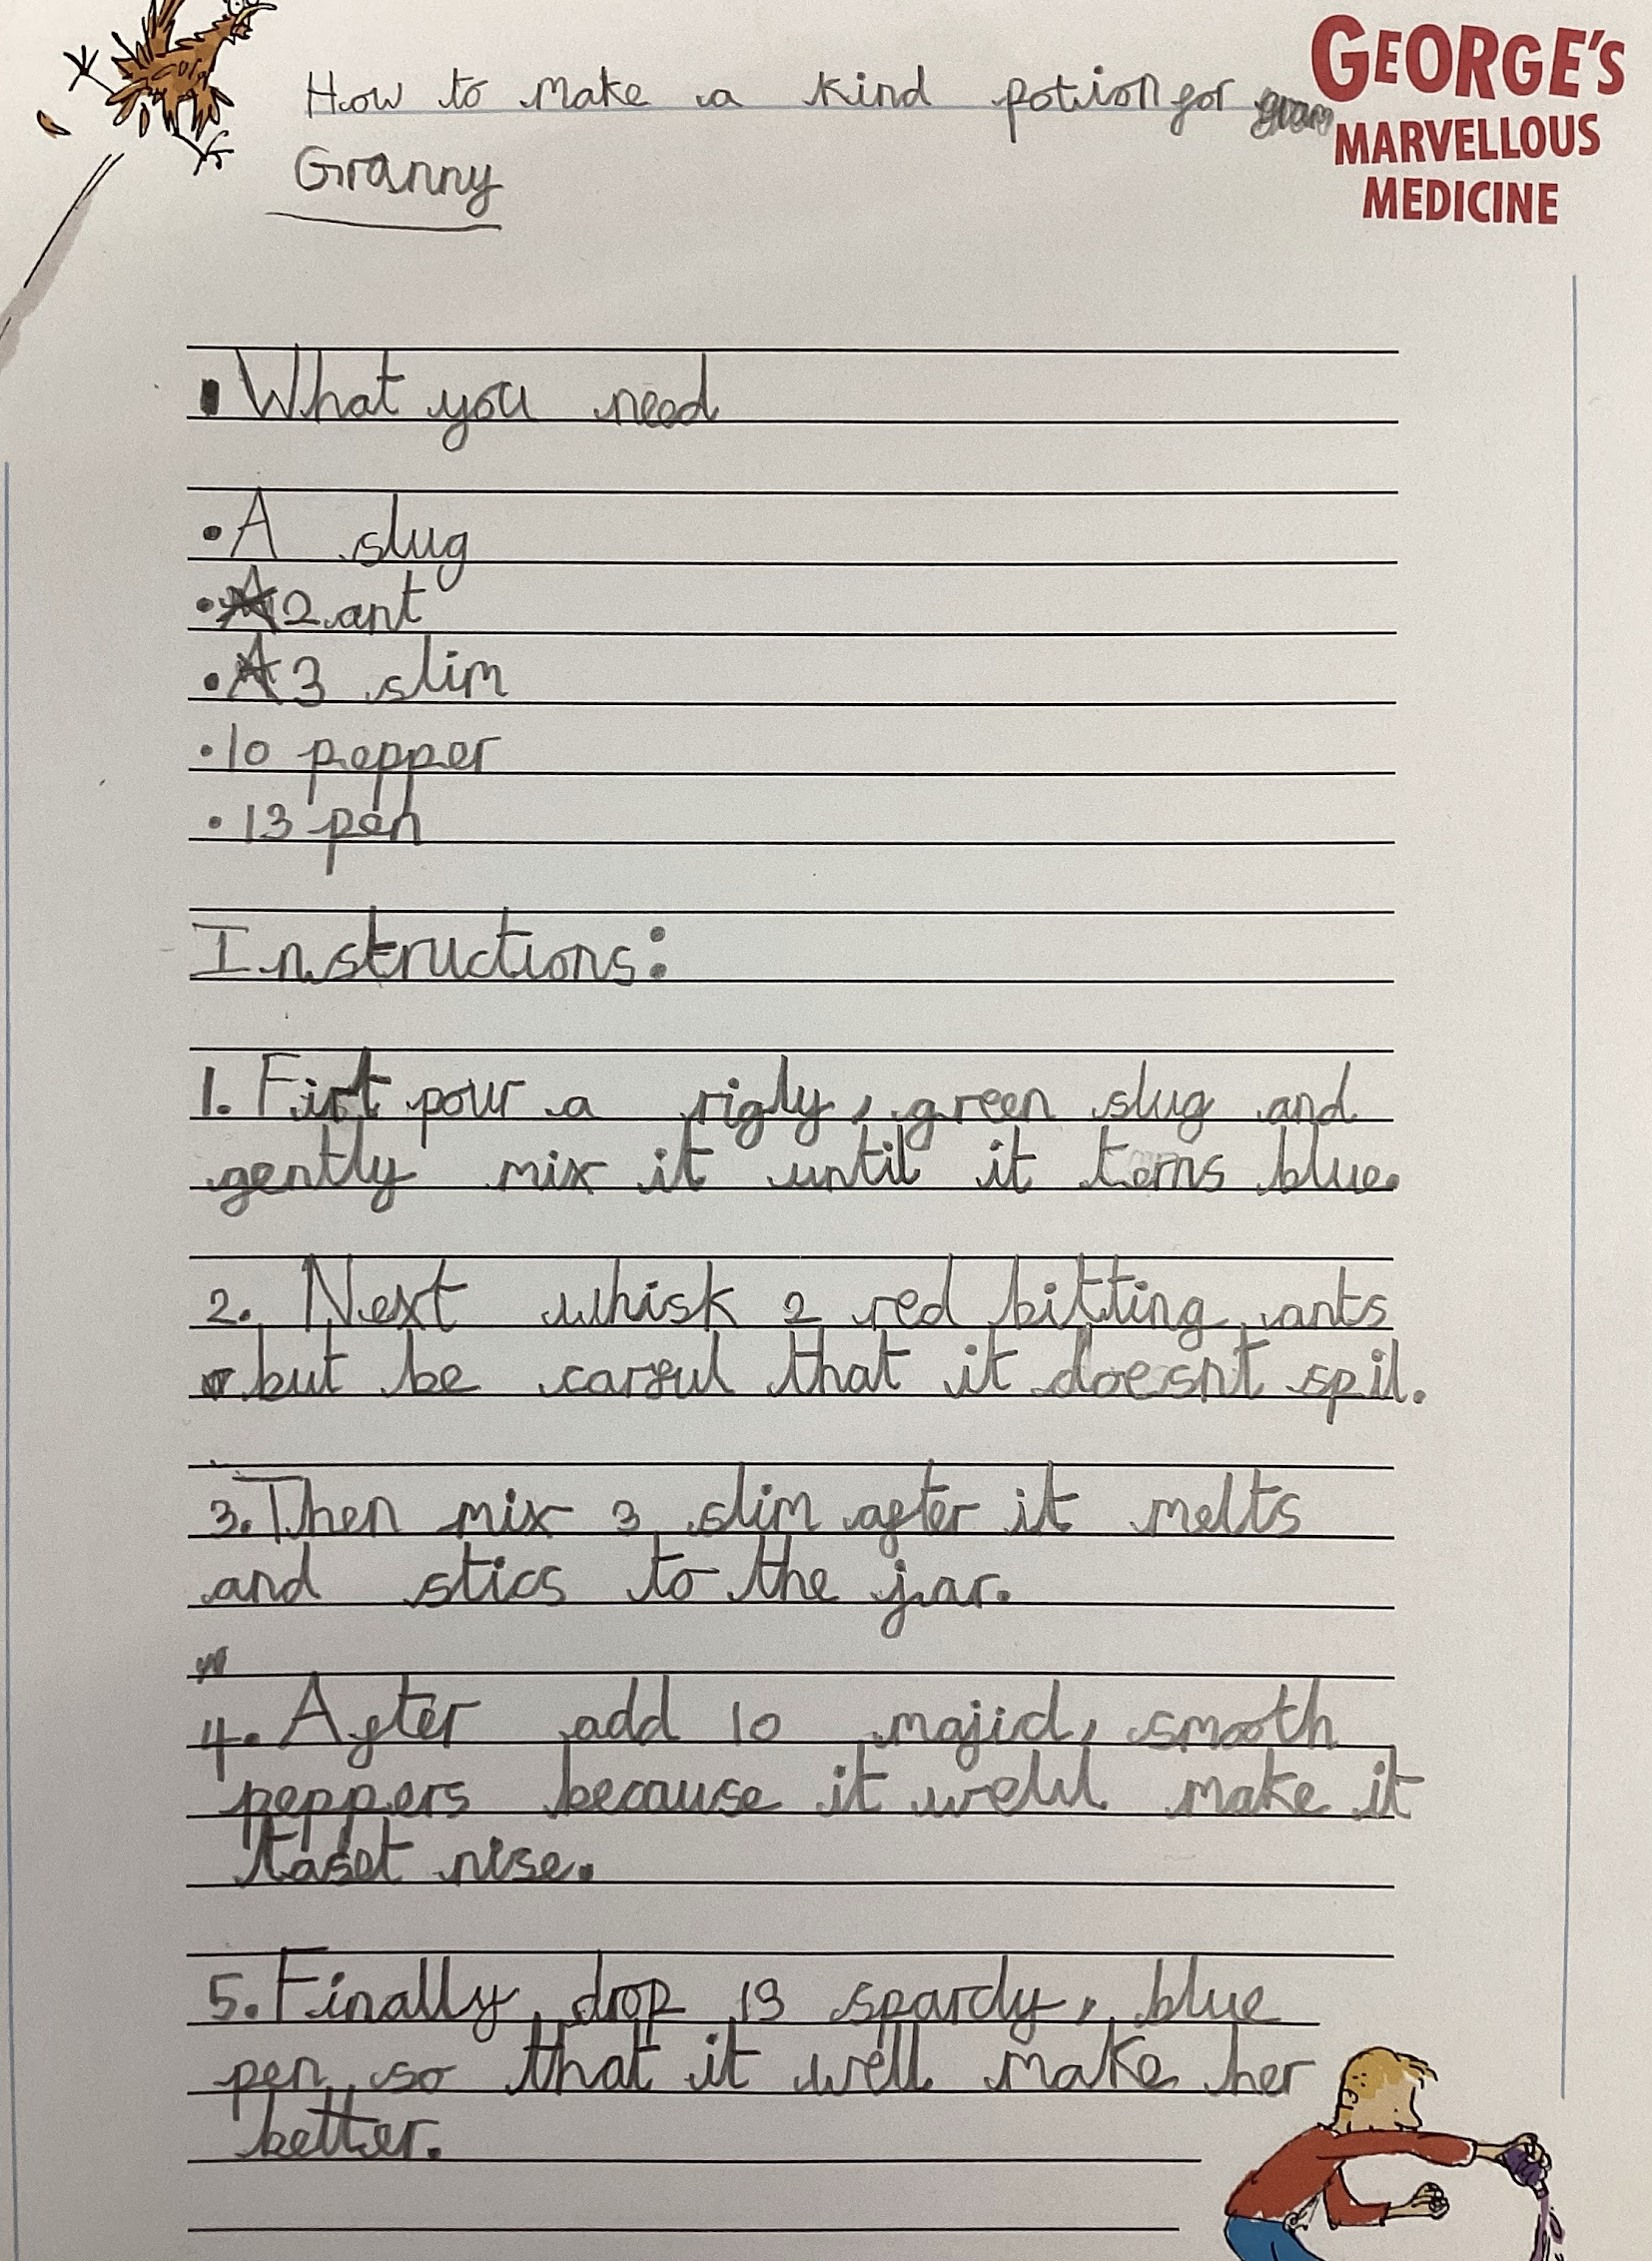 How to make a kind potion for
Granny
GEORGE'S
MARVELLOUS
MEDICINE
What you need
• A slug
• 2 ant
• 3 slim
• 10 pepper
• 13 pen
Instructions:
1. First pour a rigly, green slug and
gently mix it until it terns blue.
2. Next whisk 2 red bitting ants
but be carful that it doesnt spil.
3. Then mix 3 slim after it melts
and stics to the jar.
4. After add 10 majid, smooth
peppers because it well make it
taset nise.
5. Finally drop 13 spardy, blue
pen so that it well make her
better.